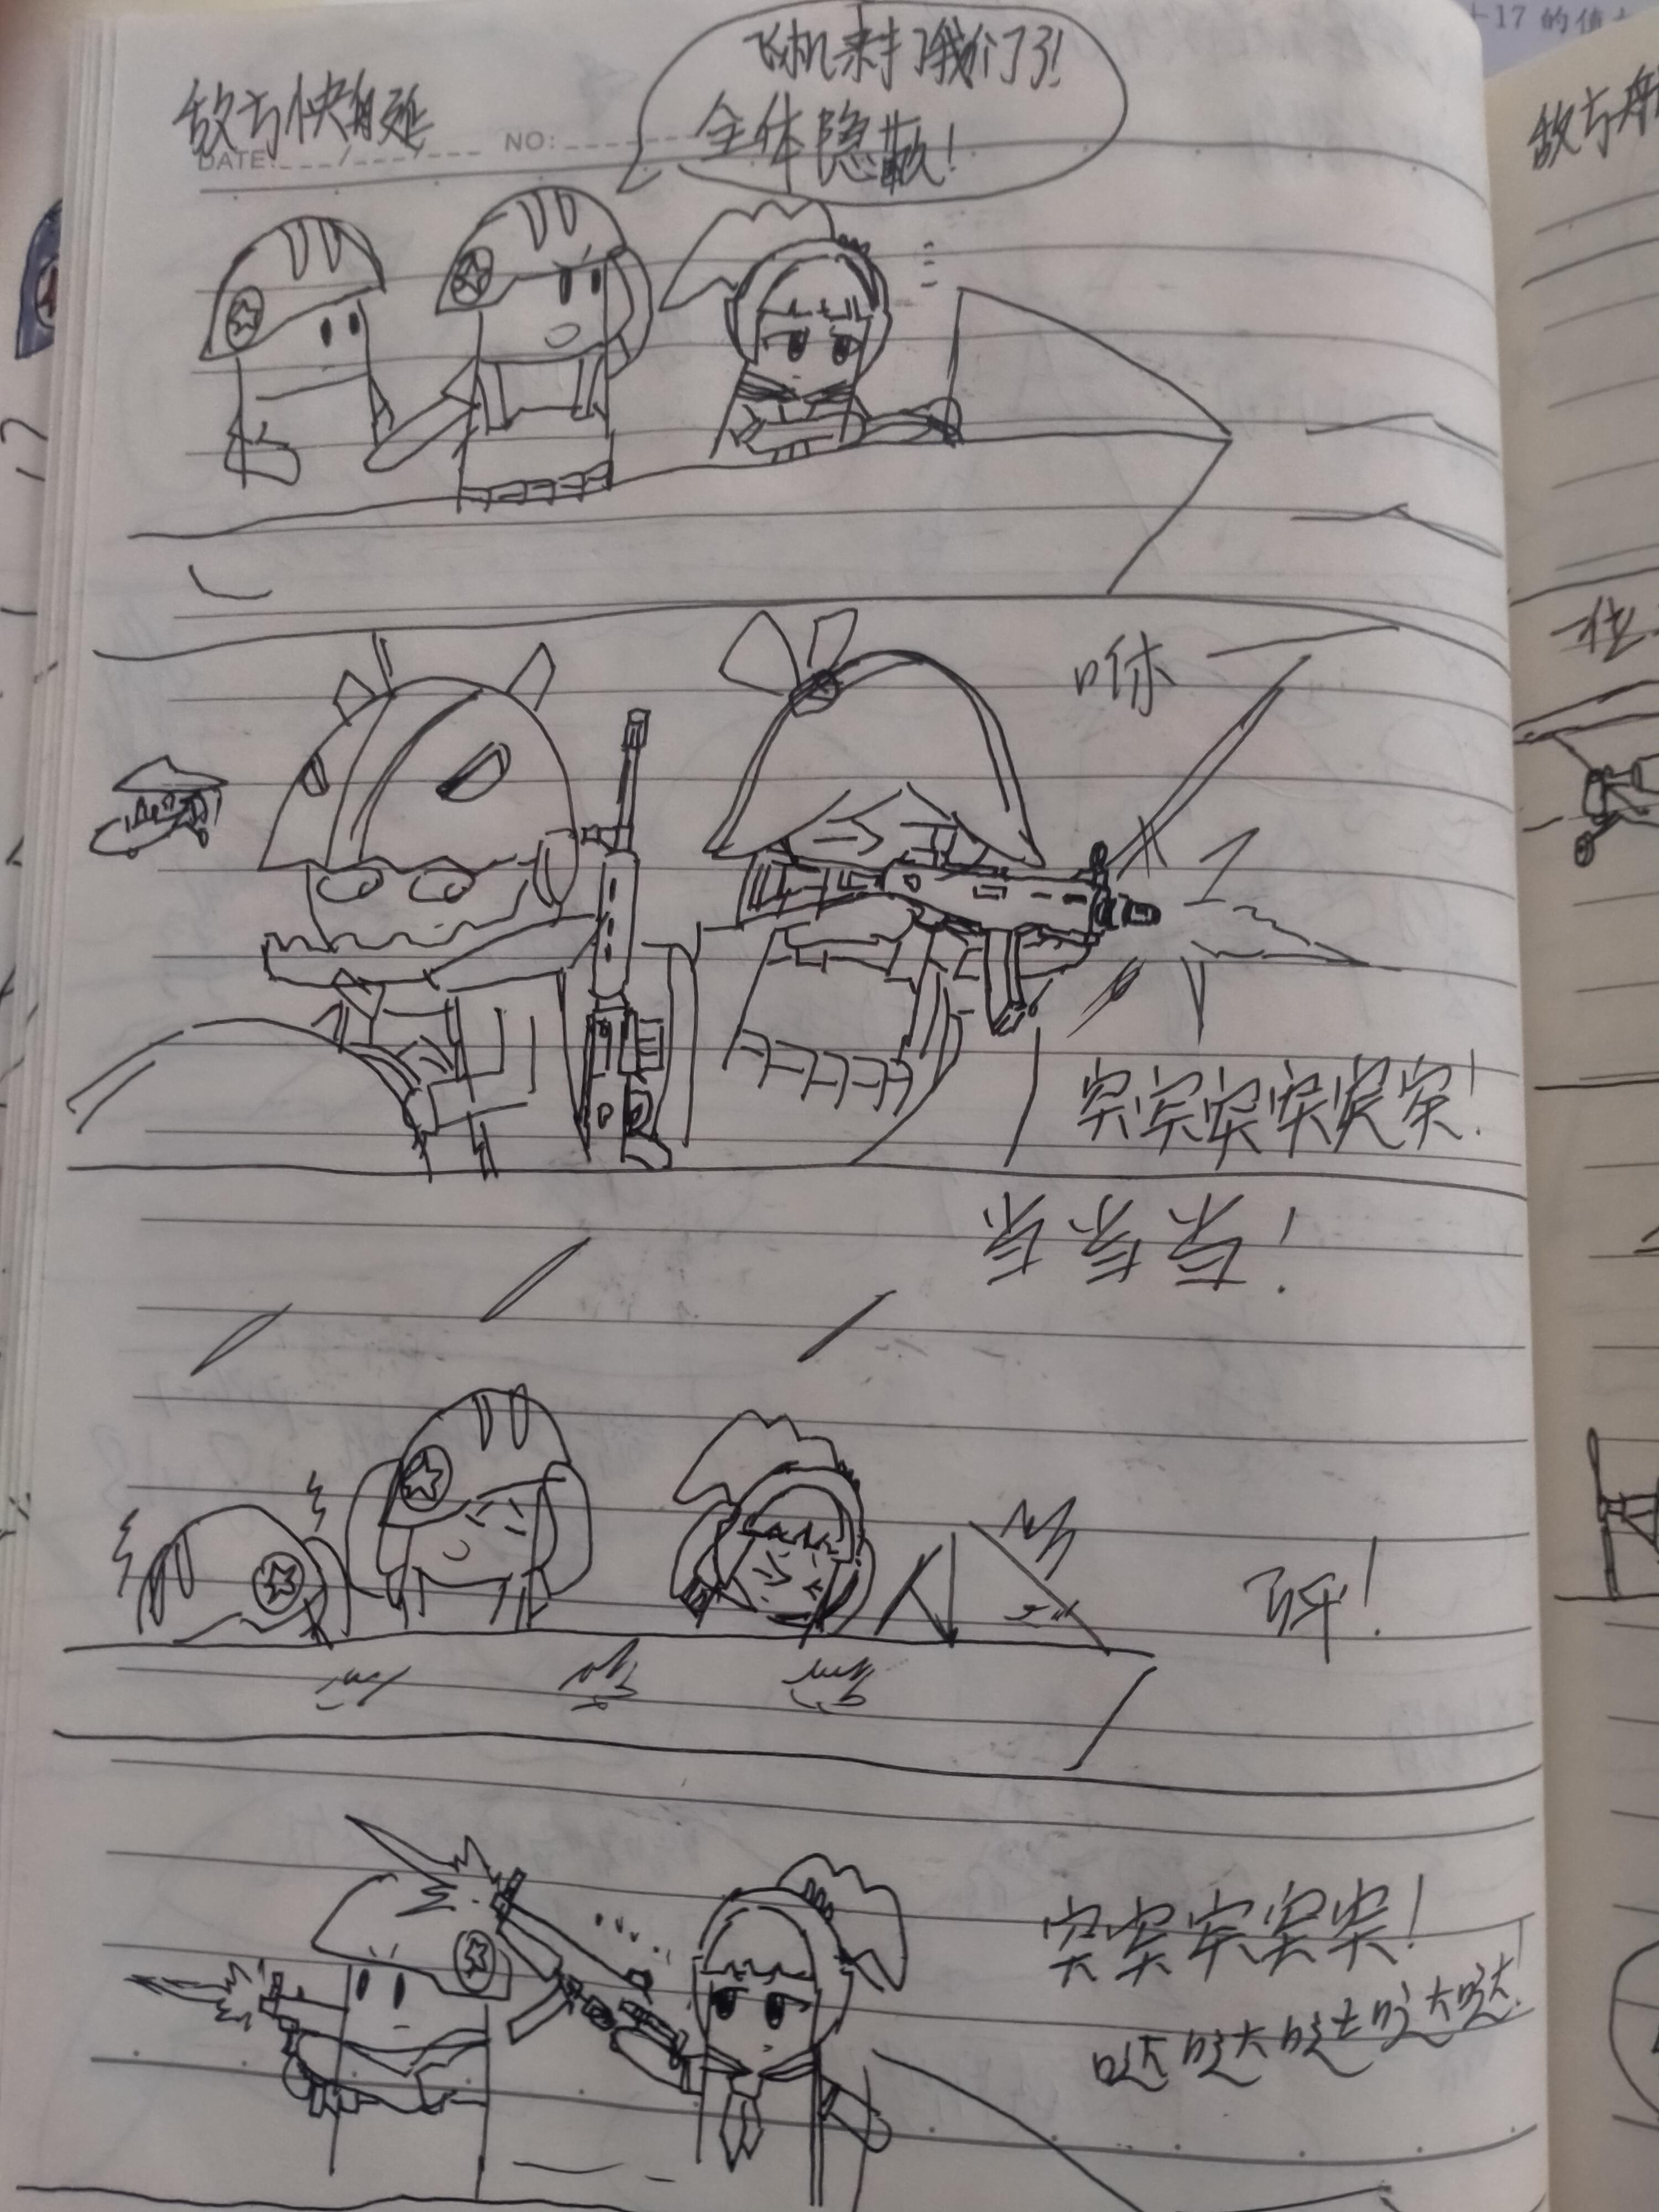 飞机来打我们了!
全体隐蔽!
敌方快艇
DATE: / / NO:
咻
突突突突突突!
当当当!
砰!
突突突突突!
哒哒哒哒哒!
+17 的值
敌方
一位